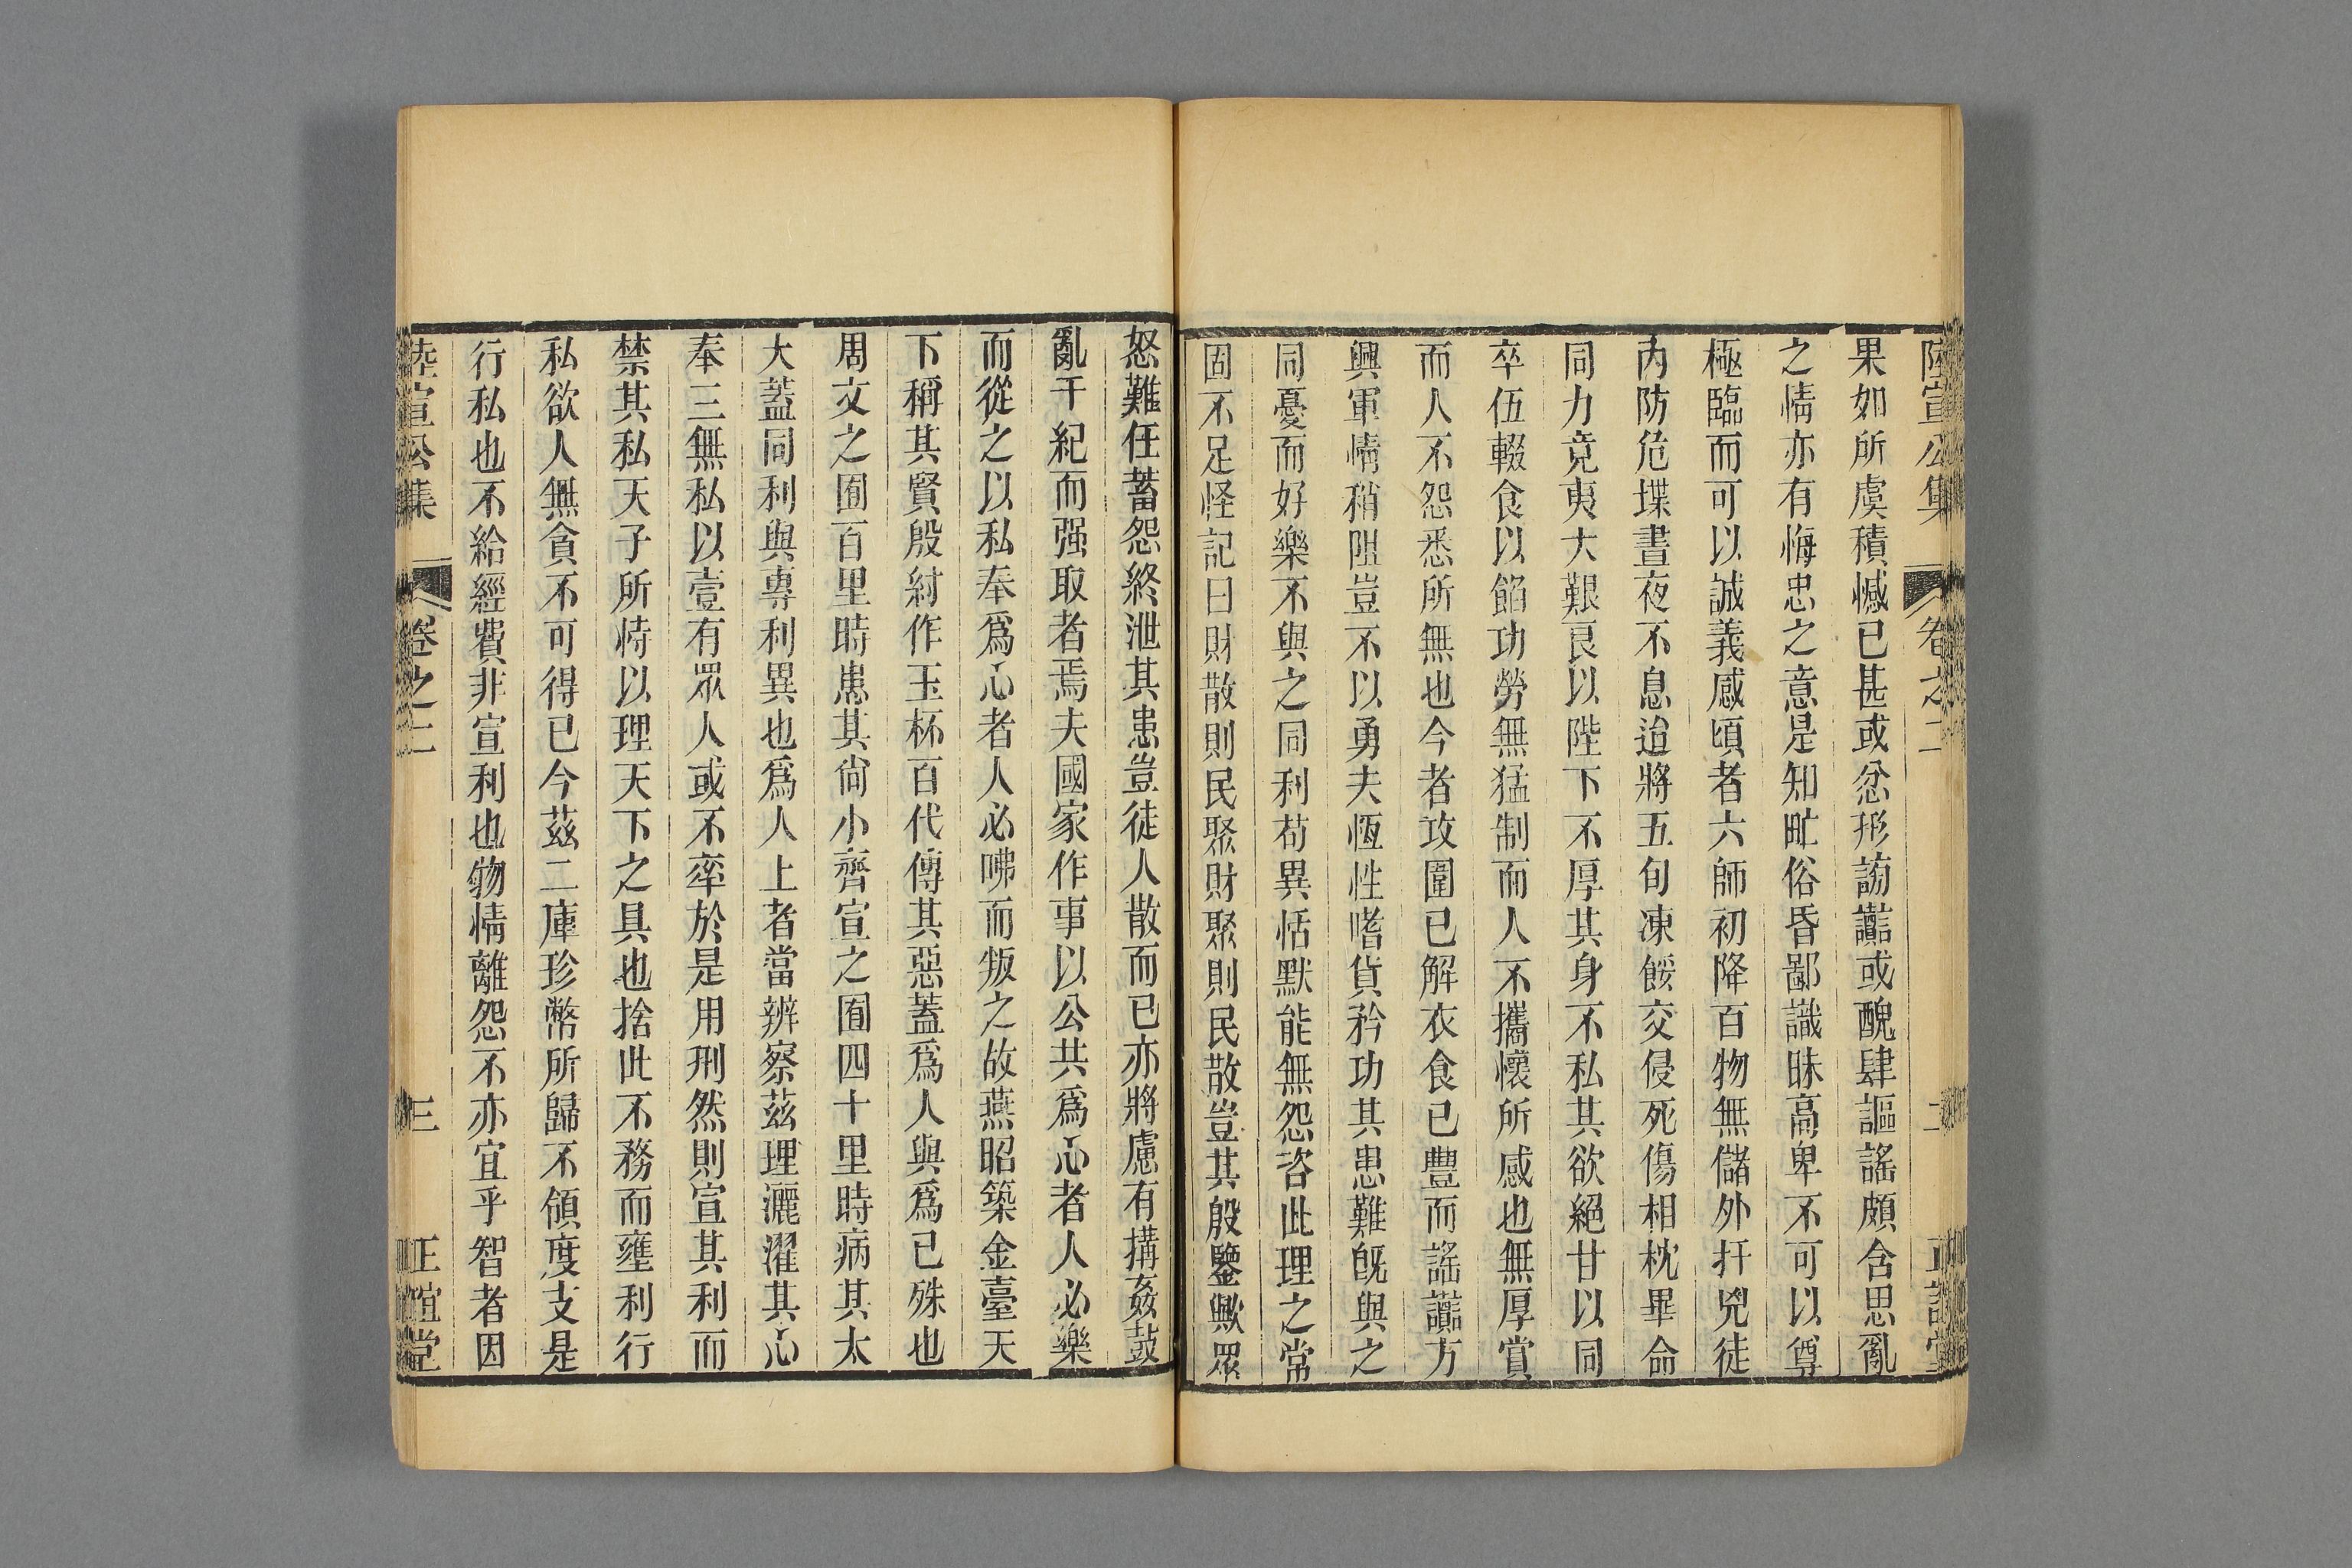 陸宣公集 卷之二 二 正誼堂
果如所虞積憾已甚或忿形謗讟或醜肆謳謠頗含思亂
之情亦有悔忠之意是知甿俗昏鄙識昧高卑不可以尊
極臨而可以誠義感頃者六師初降百物無儲外扞兇徒
內防危堞晝夜不息迨將五旬凍餒交侵死傷相枕畢命
同力竟夷大艱良以陛下不厚其身不私其欲絕甘以同
卒伍輟食以餡功勞無猛制而人不攜懷所感也無厚賞
而人不怨悉所無也今者攻圍已解衣食已豐而謠讟方
興軍情稍阻豈不以勇夫恆性嗜貨矜功其患難旣與之
同憂而好樂不與之同利苟異恬默能無怨咨此理之常
固不足怪記曰財散則民聚財聚則民散豈其殷鑒歟眾
怒難任蓄怨終泄其患豈徒人散而已亦將慮有搆姦鼓
亂干紀而强取者焉夫國家作事以公共爲心者人必樂
而從之以私奉爲心者人必咈而叛之故燕昭築金臺天
下稱其賢殷紂作玉杯百代傳其惡蓋爲人與爲已殊也
周文之囿百里時患其尙小齊宣之囿四十里時病其太
大蓋同利與專利異也爲人上者當辨察茲理灑濯其心
奉三無私以壹有眾人或不率於是用刑然則宣其利而
禁其私天子所恃以理天下之具也捨此不務而壅利行
私欲人無貪不可得已今茲二庫珍幣所歸不領度支是
行私也不給經費非宣利也物情離怨不亦宜乎智者因
陸宣公集 卷之二 三 正誼堂